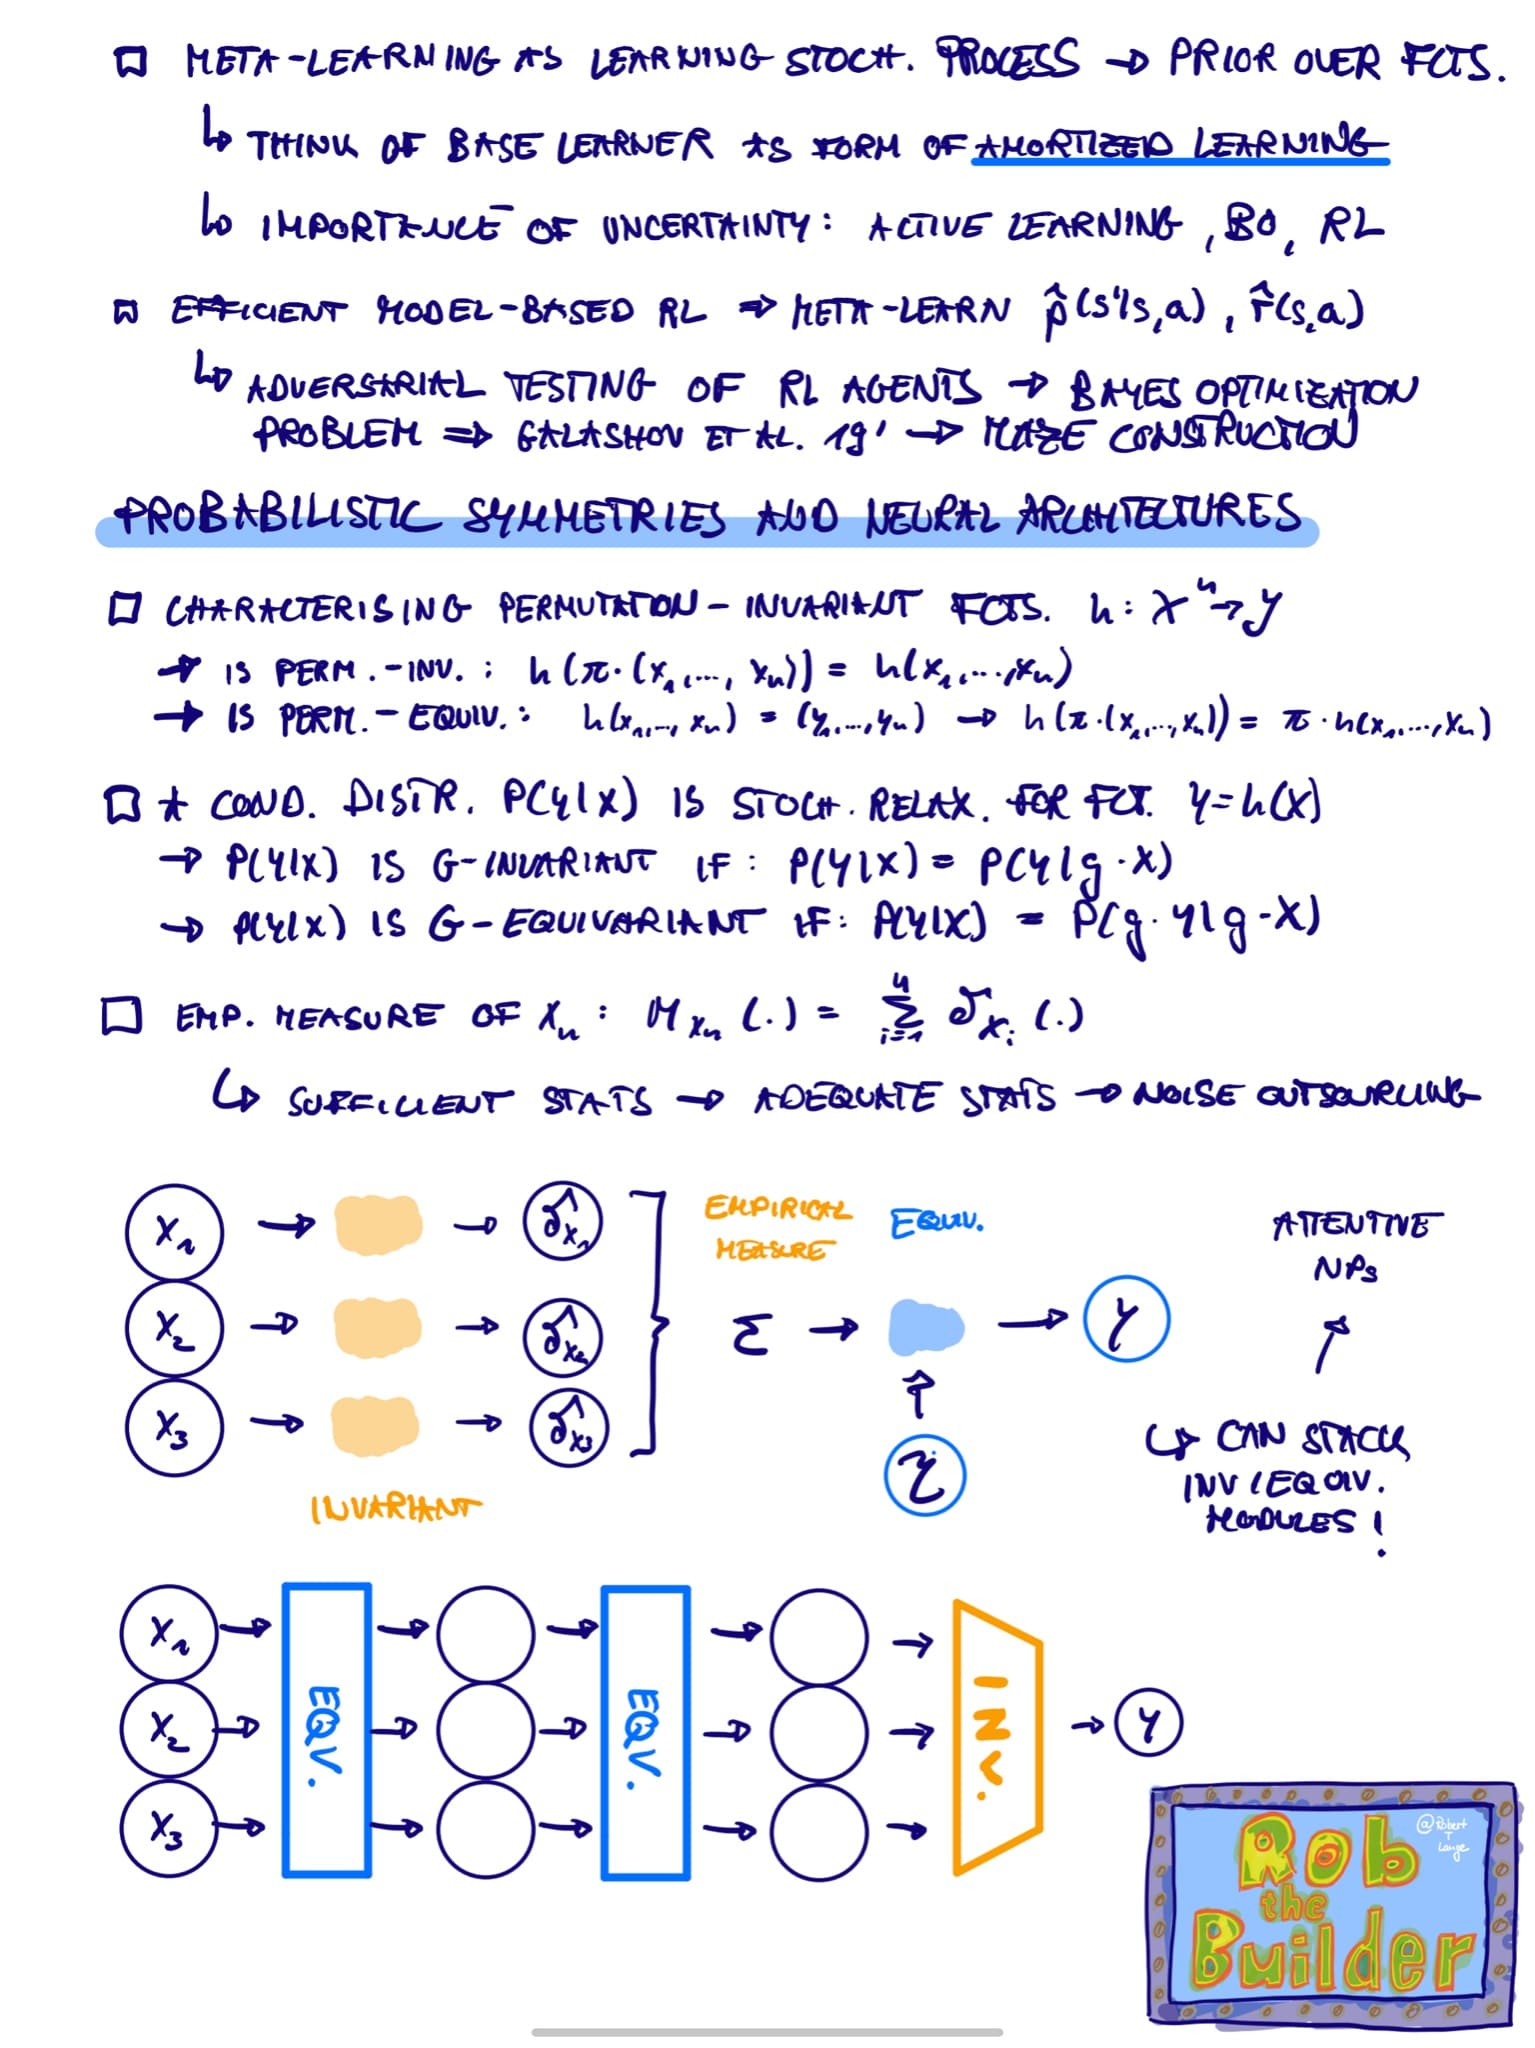 META-LEARNING AS LEARNING STOCH. PROCESS → PRIOR OVER FCTS.
↳ THINK OF BASE LEARNER AS FORM OF AMORTIZED LEARNING
↳ IMPORTANCE OF UNCERTAINTY: ACTIVE LEARNING, BO, RL
EFFICIENT MODEL-BASED RL ⇒ META-LEARN p̂(s'|s,a), r̂(s,a)
↳ ADVERSARIAL TESTING OF RL AGENTS → BAYES OPTIMIZATION
PROBLEM ⇒ GALASHOV ET AL. 19' → MAZE CONSTRUCTION
PROBABILISTIC SYMMETRIES AND NEURAL ARCHITECTURES
CHARACTERISING PERMUTATION-INVARIANT FCTS. h: X^n → Y
→ IS PERM.-INV.: h(π·(x₁,...,xₙ)) = h(x₁,...,xₙ)
→ IS PERM.-EQUIV.: h(x₁,...,xₙ) = (y₁,...,yₙ) → h(π·(x₁,...,xₙ)) = π·h(x₁,...,xₙ)
A COND. DISTR. P(Y|X) IS STOCH. RELAX. FOR FCT. Y=h(X)
→ P(Y|X) IS G-INVARIANT IF: P(Y|X) = P(Y|g·X)
→ P(Y|X) IS G-EQUIVARIANT IF: P(Y|X) = P(g·Y|g·X)
EMP. MEASURE OF Xₙ: M_Xₙ(.) = Σ_{i=1}^n δ_{Xᵢ}(.)
↳ SUFFICIENT STATS → ADEQUATE STATS → NOISE OUTSOURCING
X₁ → → δ_X₁
X₂ → → δ_X₂
X₃ → → δ_X₃
INVARIANT
EMPIRICAL
MEASURE
EQUIV.
Σ → → Y
η
ATTENTIVE
NPs
↳ CAN STACK
INV/EQUIV.
MODULES!
X₁
X₂
X₃
EQV.
EQV.
INV.
Y
@Robert
T
Lange
Rob
the
Builder